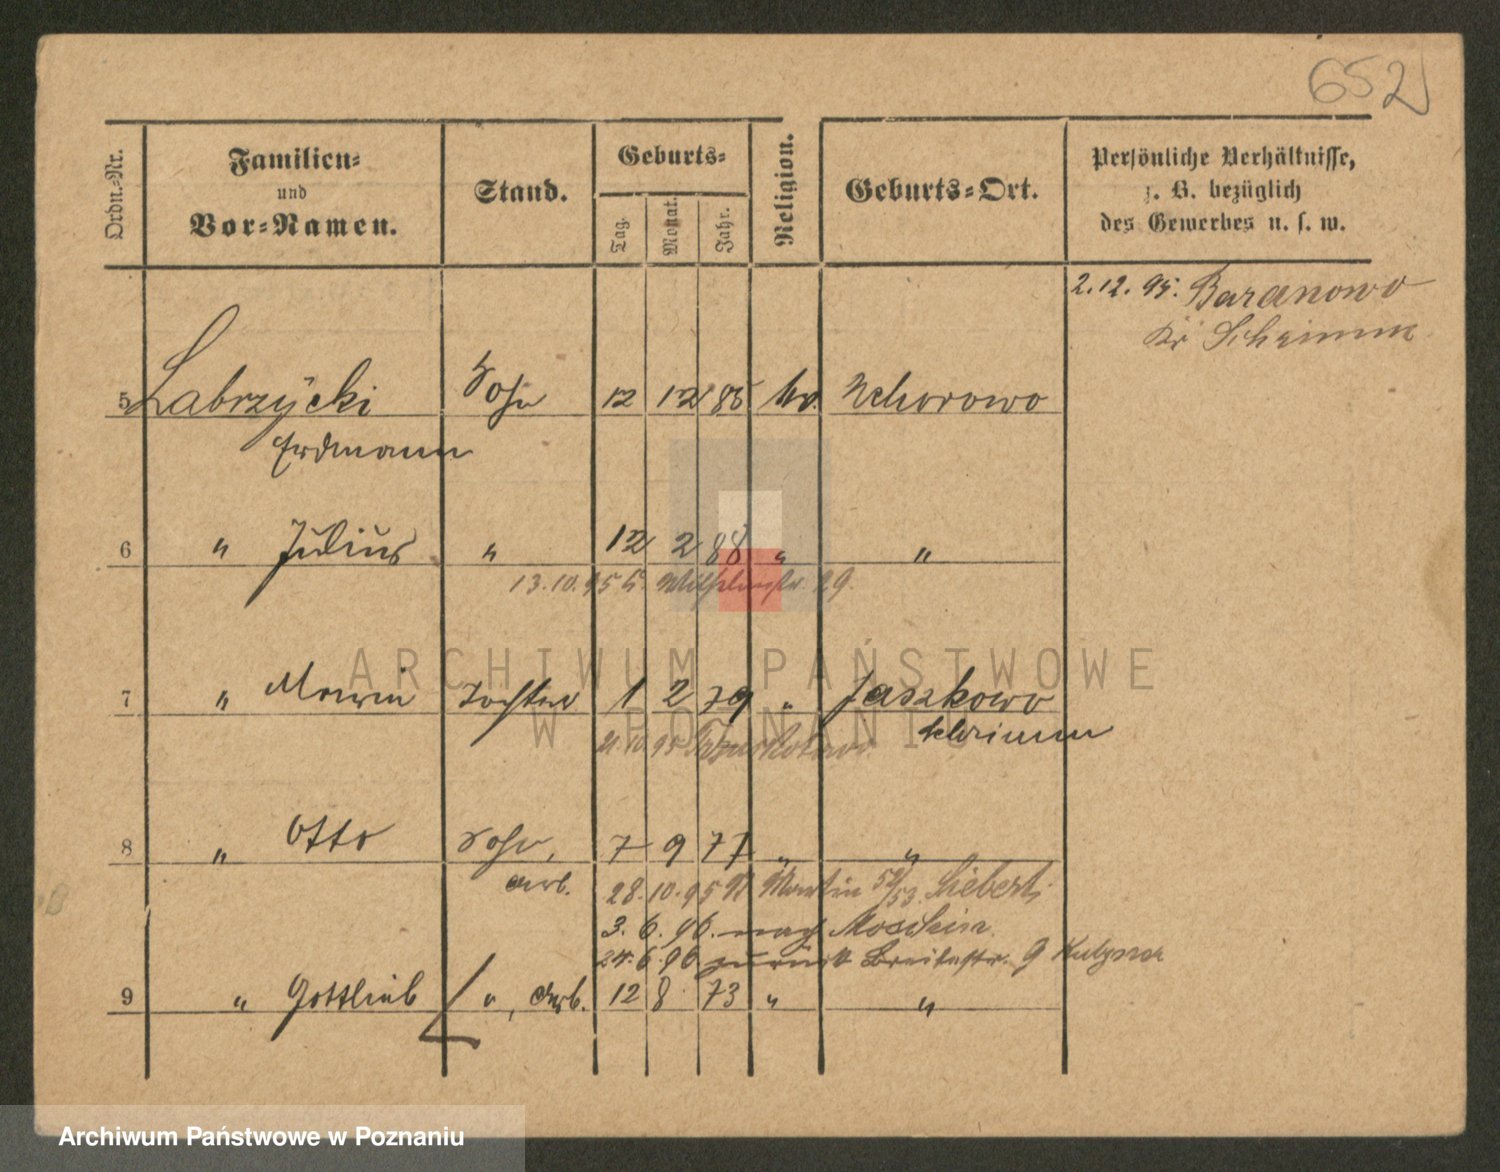 652
Ordn.-Nr.
Familien-
und
Vor-Namen.
Stand.
Geburts-
Tag.
Monat.
Jahr.
Religion.
Geburts-Ort.
Persönliche Verhältnisse,
z. B. bezüglich
des Gewerbes u. s. w.
2.12.95. Baranowo
Kr Schrimm
5 Labrzycki Sohn 12 12 85 ev.
Erdmann
6 " Julius " 12 2 88 " "
13.10.95 Wilhelmstr. 29.
7 " Tochter 1 2 79 " Jaszkowo
Schrimm
21.10.95
8 " Otto Sohn, 7 9 77 " "
Arb. 28.10.95 Martin 52/53 Liebert
3.6.96. nach Moschin
24.6.96 zurück Breitestr. 9
9 " Gottlieb ", Arb. 12 8 73 " "
ARCHIWUM PAŃSTWOWE
W POZNANIU
Archiwum Państwowe w Poznaniu